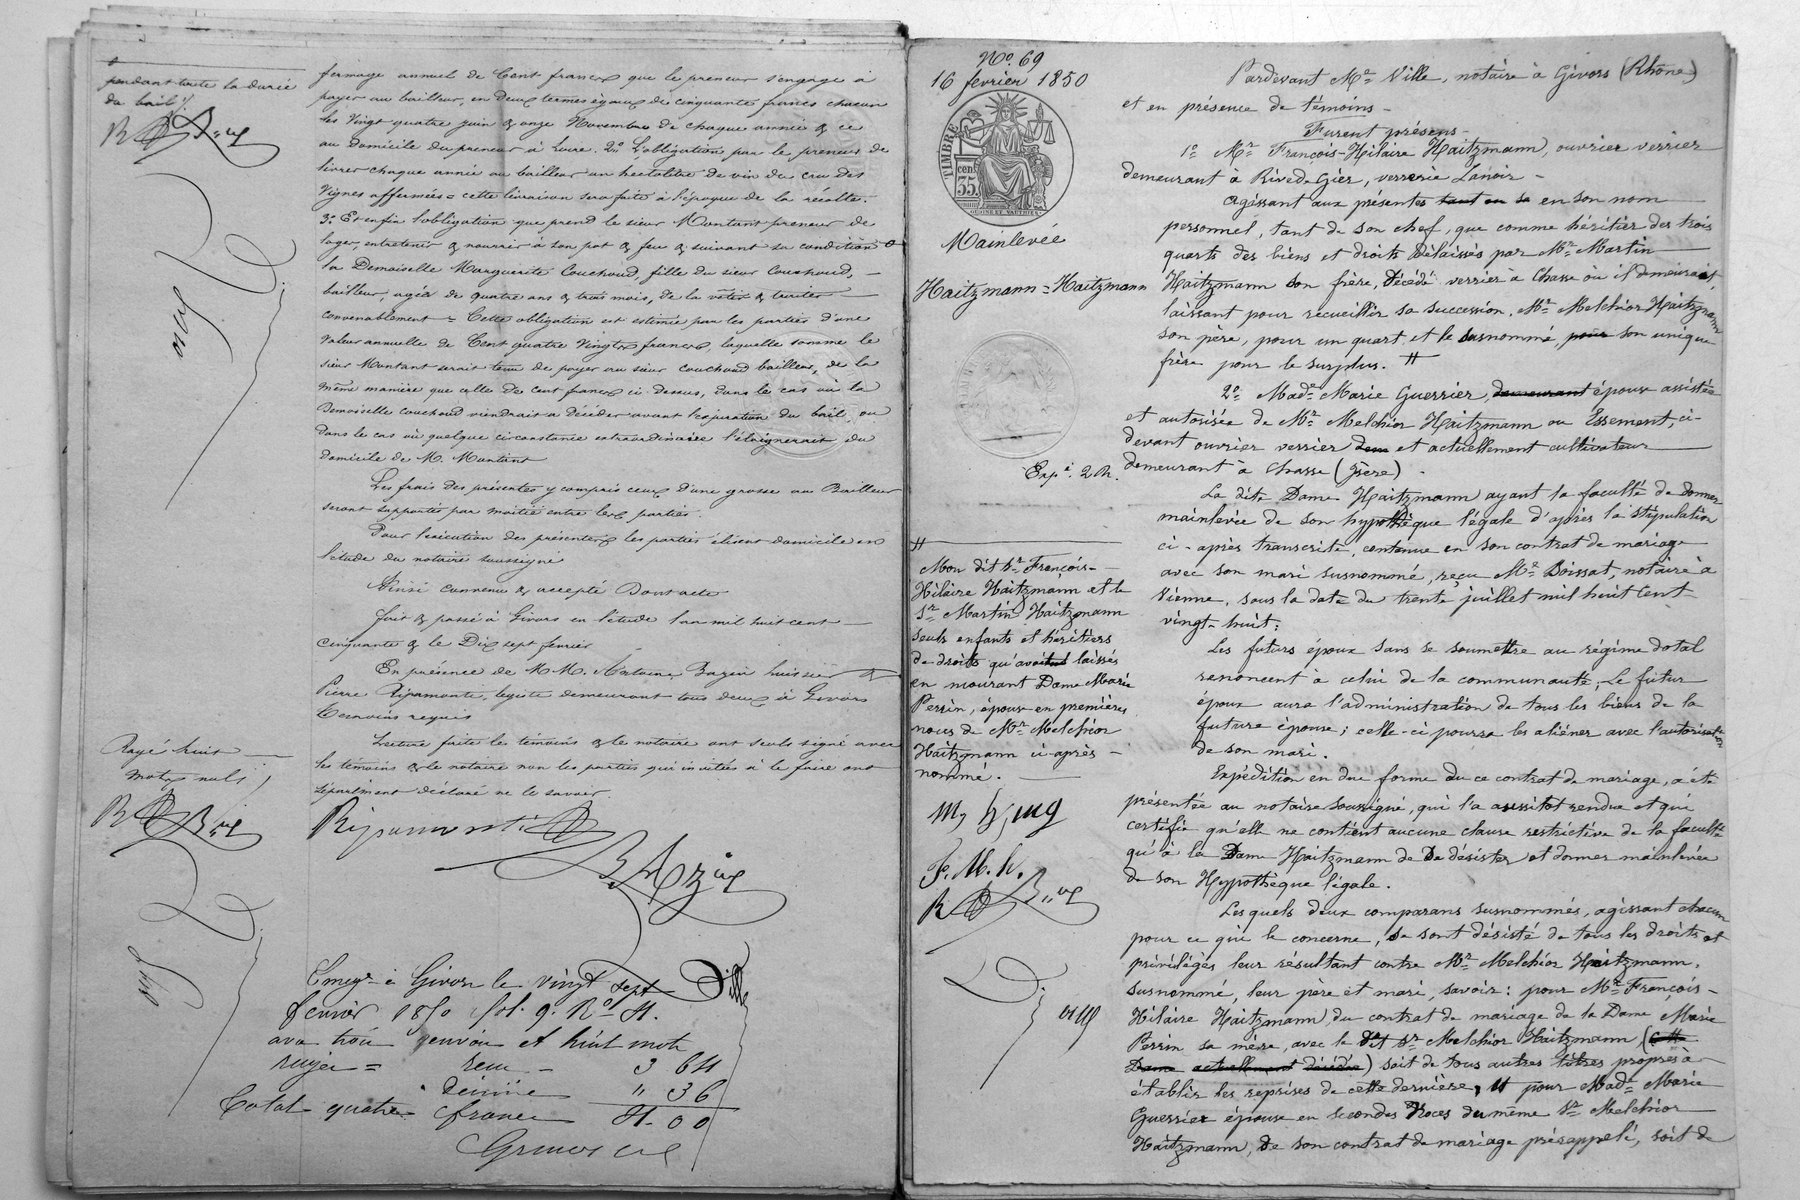 pendant toute la durée
du bail /.
fermage annuel de Cent francs que le preneur s'engage à
payer au bailleur, en deux termes égaux de cinquante francs chacun
les Vingt quatre juin & onze Novembre de chaque année & ce
au domicile du preneur à Loire. 2º L'obligation par le preneur de
livrer chaque année au bailleur un hectolitre de vin du cru des
Vignes affermées = cette livraison sera faite à l'époque de la récolte.
3º Et enfin l'obligation que prend le sieur Montant preneur de
loger, entretenir & nourrir à son pot & feu & suivant sa condition
la Demoiselle Marguerite Couchoud, fille du sieur Couchoud, —
bailleur, agée de quatre ans & trois mois, de la vêtir & traiter —
convenablement = Cette obligation est estimée par les parties d'une
valeur annuelle de Cent quatre Vingts francs, laquelle somme le
sieur Montant serait tenu de payer au sieur Couchoud bailleur, de la
même manière que celle de cent francs ci dessus, dans le cas où la
Demoiselle Couchoud viendrait à décéder avant l'expiration du bail, ou
dans le cas où quelque circonstance extraordinaire l'éloignerait du
domicile de M. Montant
Les frais des présentes y compris ceux d'une grosse au Bailleur
seront supportés par moitié entre les parties.
Pour l'exécution des présentes les parties élisent domicile en
l'étude du notaire soussigné
Ainsi convenu & accepté Dont acte
Fait & passé à Givors en l'étude l'an mil huit cent —
cinquante & le Dix sept février
En présence de MM. Antoine Bazin huissier &
Pierre Ripamonte, legiste demeurant tous deux à Givors
Témoins requis
Lecture faite les témoins & le notaire ont seuls signé avec
les témoins & le notaire non les parties qui invitées à le faire ont
séparément déclaré ne le savoir.
Rayé huit —
mots nuls /
Ripamonti
BAzin
Ville
Enregé à Givors le vingt sept
février 1850 fol. 9. Rº 4.
avec trois renvois et huit mots
rayés = reçu — 3 64
Décime " 36
Total quatre francs 4. 00
Nº. 69
16 février 1850
TIMBRE
35
cent
Mainlevée
Haitzmann = Haitzmann
Expé. 2 Rh.
#
Mon dit Sr. François-
Hilaire Haitzmann et le
Sr. Martin Haitzmann
seuls enfants et héritiers
de droits qu'avait laissés
en mourant Dame Marie
Perrin, épouse en premières
noces de Mr. Melchior
Haitzmann ci-après —
nommé. —
F. M. h.
Pardevant Me. Ville, notaire à Givors (Rhône)
et en présence de témoins —
Furent présens —
1º Mr. François-Hilaire Haitzmann, ouvrier verrier
demeurant à Rive de Gier, verrerie Lanoir —
agissant aux présentes tant en sa en son nom
personnel, tant de son chef, que comme héritier des trois
quarts des biens et droits délaissés par Mr. Martin
Haitzmann son frère, Décédé verrier à Chasse où il demeurait,
laissant pour recueillir sa succession, Mr. Melchior Haitzmann
son père, pour un quart, et le susnommé, pour son unique
frère pour le surplus. #
2º. Made. Marie Guerrier, demeurant épouse assistée
et autorisée de Mr. Melchior Haitzmann ou Essement, ci-
devant ouvrier verrier dem et actuellement cultivateur —
demeurant à Chasse (Isère) .
La dite Dame Haitzmann ayant la faculté de donner
mainlevée de son hypothèque légale d'après la stipulation
ci-après transcrite, contenue en son contrat de mariage
avec son mari susnommé, reçu Me. Boissat, notaire à
Vienne, sous la date du trente juillet mil huit cent
vingt-huit:
Les futurs époux sans se soumettre au régime dotal
renoncent à celui de la communauté; Le futur
époux aura l'administration de tous les biens de la
future épouse; celle-ci pourra les aliéner avec l'autorisation
de son mari.
Expédition en due forme du ce contrat de mariage, a été
présentée au notaire soussigné, qui l'a aussitôt rendue et qui
certifie qu'elle ne contient aucune clause restrictive de la faculté
qu'a la Dame Haitzmann de se désister et donner mainlevée
de son Hypothèque légale.
Lesquels deux comparans susnommés, agissant chacun
pour ce qui le concerne, se sont désisté de tous les droits et
privilèges leur résultant contre Mr. Melchior Haitzmann,
susnommé, leur père et mari, savoir: pour Mr. François-
Hilaire Haitzmann, du contrat de mariage de la Dame Marie
Perrin sa mère, avec le dit Sr. Melchior Haitzmann, (cette
Dame actuellement décédée) soit de tous autres titres propres à
établir les reprises de cette dernière, et pour Made. Marie
Guerrier épouse en secondes Noces du même Sr. Melchior
Haitzmann, de son contrat de mariage prérappelé, soit de